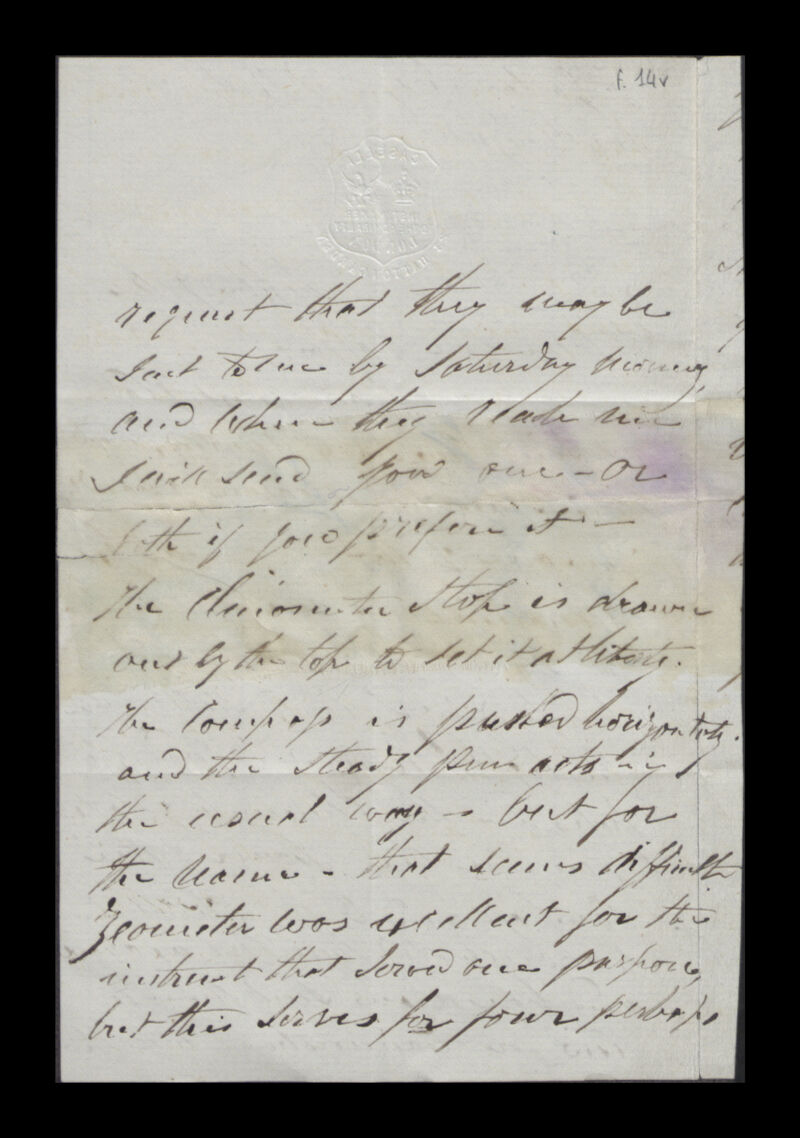 f. 14v
CASELLA
INST MAKER
LONDON
HATTON GARDEN
request that they may be
sent to me by Saturday morng,
and when they reach me
I will send you one – or
both if you prefer it –
the Clinometer Stop is drawn
out by the top to set it at liberty.
the Compass is pushed horizontally.
and the steady pin acts in
the usual way – but for
the name – that seems difficult
Zeometer was excellent for the
instrumt that served one purpose,
but this serves for four perhaps